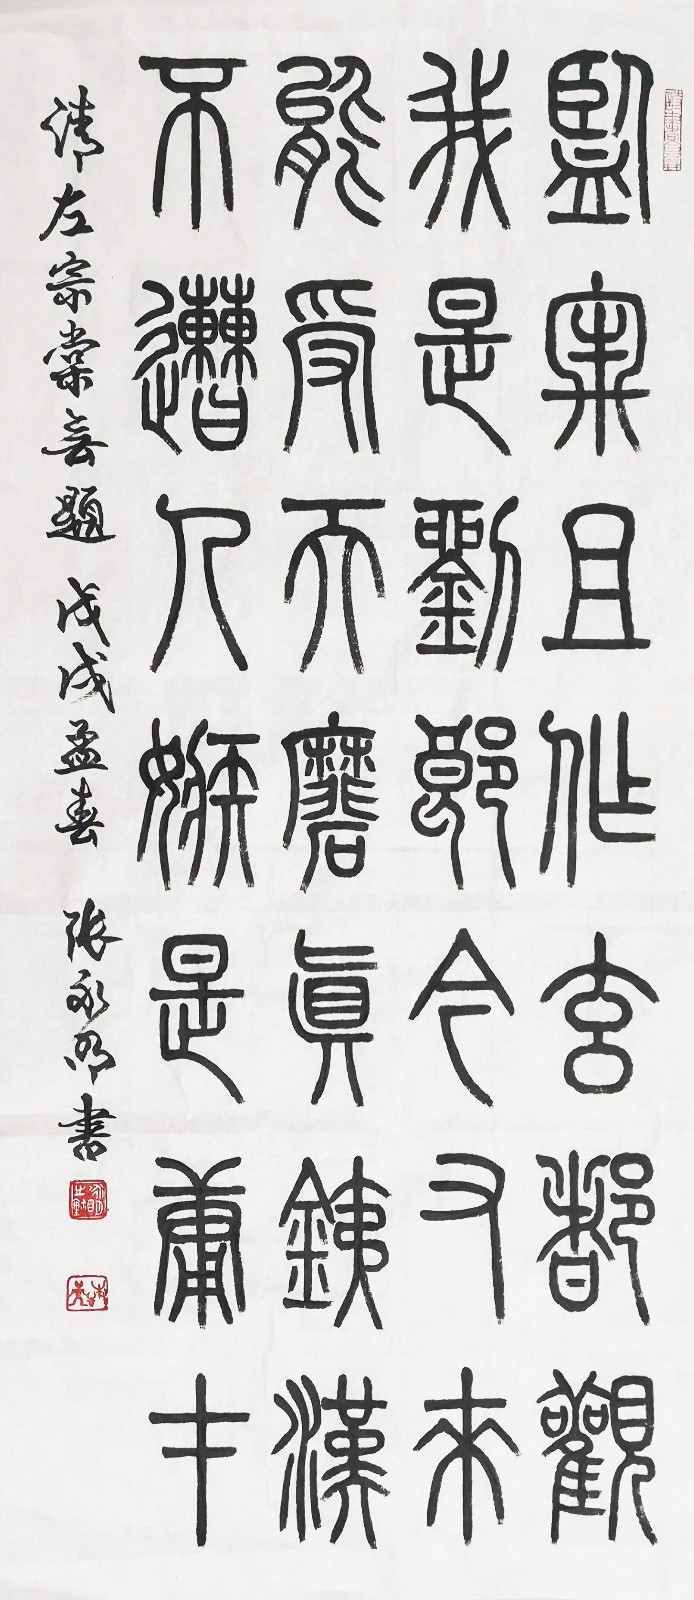 監且作玄都觀
我是劉郎今又來
能受天磨真銕漢
不遭人嫉是庸才
清左宗棠無題 戊戌孟春 張永明書